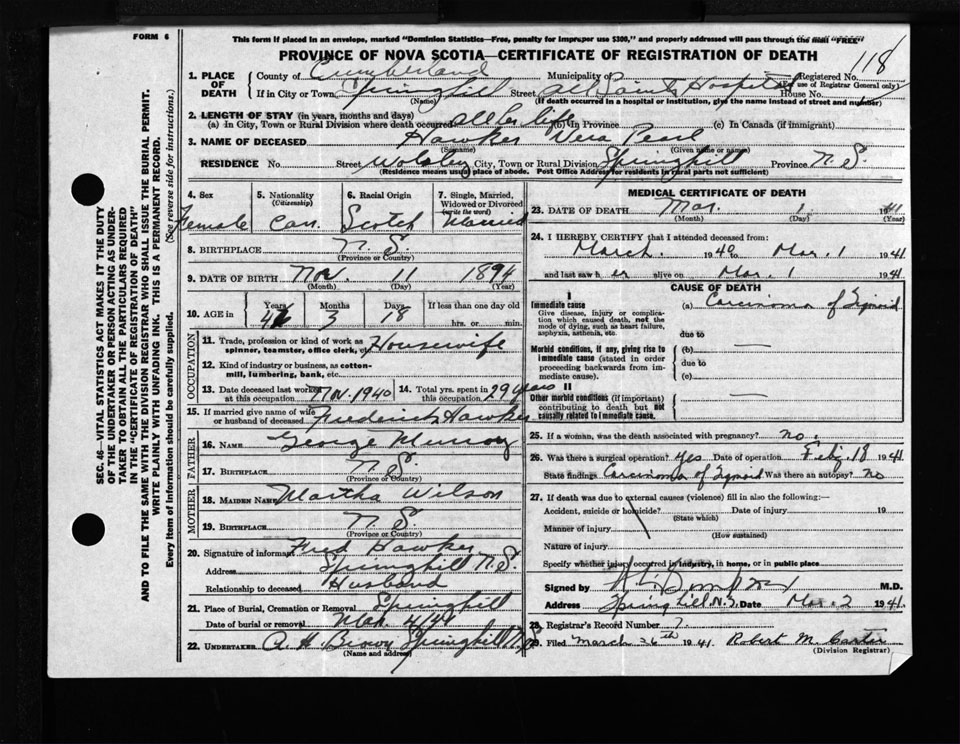 FORM 6
This form if placed in an envelope, marked "Dominion Statistics—Free, penalty for improper use $300," and properly addressed will pass through the mail "FREE"
PROVINCE OF NOVA SCOTIA—CERTIFICATE OF REGISTRATION OF DEATH
118
1. PLACE OF DEATH
County of Cumberland Municipality of Registered No.
(For use of Registrar General only)
If in City or Town Springhill Street All Saints Hospital House No.
(Name) (If death occurred in a hospital or institution, give the name instead of street and number)
2. LENGTH OF STAY (in years, months and days)
(a) In City, Town or Rural Division where death occurred all her life (b) In Province (c) In Canada (if immigrant)
3. NAME OF DECEASED Hawker Vera Pearl
(Surname) (Given name or names)
RESIDENCE No. Street Wolsley City, Town or Rural Division Springhill Province N.S.
(Residence means usual place of abode. Post Office Address for residents in rural parts not sufficient)
4. Sex Female
5. Nationality (Citizenship) Can.
6. Racial Origin Scotch
7. Single, Married, Widowed or Divorced (write the word) Married
8. BIRTHPLACE N.S.
(Province or Country)
9. DATE OF BIRTH Nov. 11 1894
(Month) (Day) (Year)
10. AGE in Years 46 Months 3 Days 18 If less than one day old hrs. or min.
OCCUPATION
11. Trade, profession or kind of work as spinner, teamster, office clerk, etc. Housewife
12. Kind of industry or business, as cotton-mill, lumbering, bank, etc.
13. Date deceased last worked at this occupation Nov. 1940 14. Total yrs. spent in this occupation 29 years
15. If married give name of wife or husband of deceased Frederick Hawker
FATHER
16. NAME George Murray
17. BIRTHPLACE N.S.
(Province or Country)
MOTHER
18. MAIDEN NAME Martha Wilson
19. BIRTHPLACE N.S.
(Province or Country)
20. Signature of informant Fred Hawker
Address Springhill N.S.
Relationship to deceased Husband
21. Place of Burial, Cremation or Removal Springhill
Date of burial or removal Mar 4/41
22. UNDERTAKER A. H. Brown Springhill N.S.
(Name and address)
MEDICAL CERTIFICATE OF DEATH
23. DATE OF DEATH Mar. 1 1941
(Month) (Day) (Year)
24. I HEREBY CERTIFY that I attended deceased from:
March. 1940 to Mar. 1 1941
and last saw her alive on Mar. 1 1941
CAUSE OF DEATH
I
Immediate cause
Give disease, injury or complication which caused death, not the mode of dying, such as heart failure, asphyxia, asthenia, etc.
(a) Carcinoma of Sigmoid
due to
Morbid conditions, if any, giving rise to immediate cause (stated in order proceeding backwards from immediate cause).
(b) —
due to
(c)
II
Other morbid conditions (if important) contributing to death but not causally related to immediate cause. —
25. If a woman, was the death associated with pregnancy? no.
26. Was there a surgical operation? Yes Date of operation Feb. 18 1941
State findings Carcinoma of Sigmoid Was there an autopsy? no
27. If death was due to external causes (violence) fill in also the following:—
Accident, suicide or homicide? Date of injury 19
(State which)
Manner of injury
(How sustained)
Nature of injury
Specify whether injury occurred in industry, in home, or in public place
Signed by M.D.
Address Springhill N.S. Date Mar. 2 1941
28. Registrar's Record Number 7.
29. Filed March 26th 1941. Robert M. Carter
(Division Registrar)
SEC. 46—VITAL STATISTICS ACT MAKES IT THE DUTY
OF THE UNDERTAKER OR PERSON ACTING AS UNDER-
TAKER TO OBTAIN ALL THE PARTICULARS REQUIRED
IN THE "CERTIFICATE OF REGISTRATION OF DEATH"
AND TO FILE THE SAME WITH THE DIVISION REGISTRAR WHO SHALL ISSUE THE BURIAL PERMIT.
WRITE PLAINLY WITH UNFADING INK. THIS IS A PERMANENT RECORD.
Every item of Information should be carefully supplied. (See reverse side for instructions.)